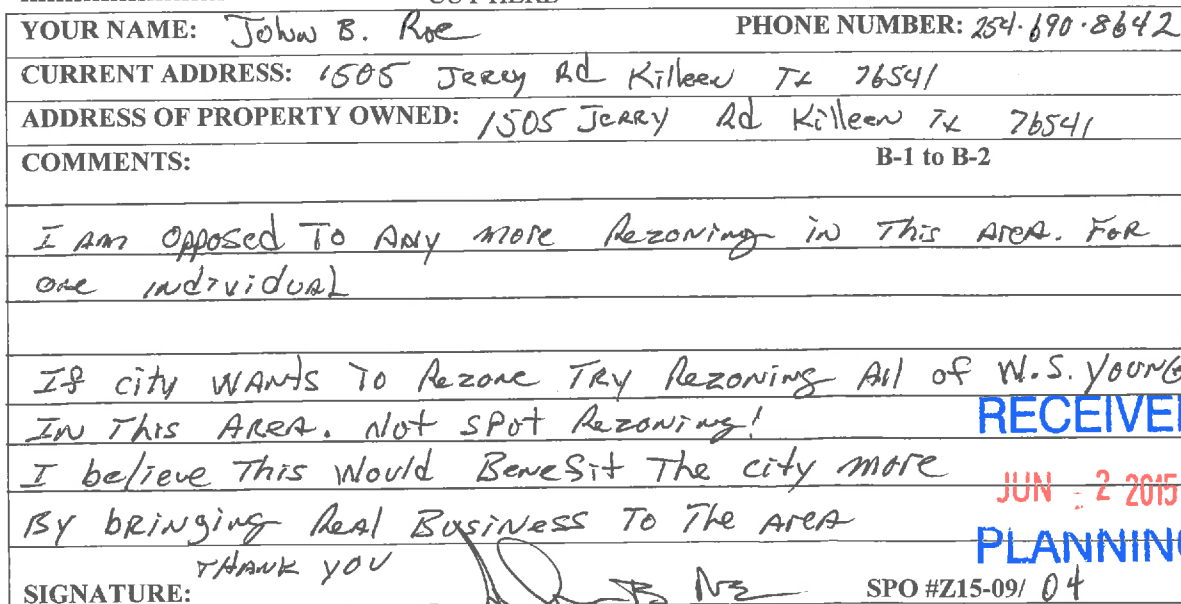 CUT HERE
YOUR NAME: John B. Roe PHONE NUMBER: 254·690·8642
CURRENT ADDRESS: 1505 Jerry Rd Killeen Tx 76541
ADDRESS OF PROPERTY OWNED: 1505 Jerry Rd Killeen Tx 76541
COMMENTS: B-1 to B-2
I Am Opposed To Any more Rezoning in This Area. For
one individual
If city WANts To Rezone TRy Rezoning All of W.S. YOUNG
In This Area. Not Spot Rezoning!
RECEIVED
I believe This Would Benefit The city more
JUN - 2 2015
By bringing Real Business To The Area
PLANNING
THANK YOU
SIGNATURE: SPO #Z15-09/ 04